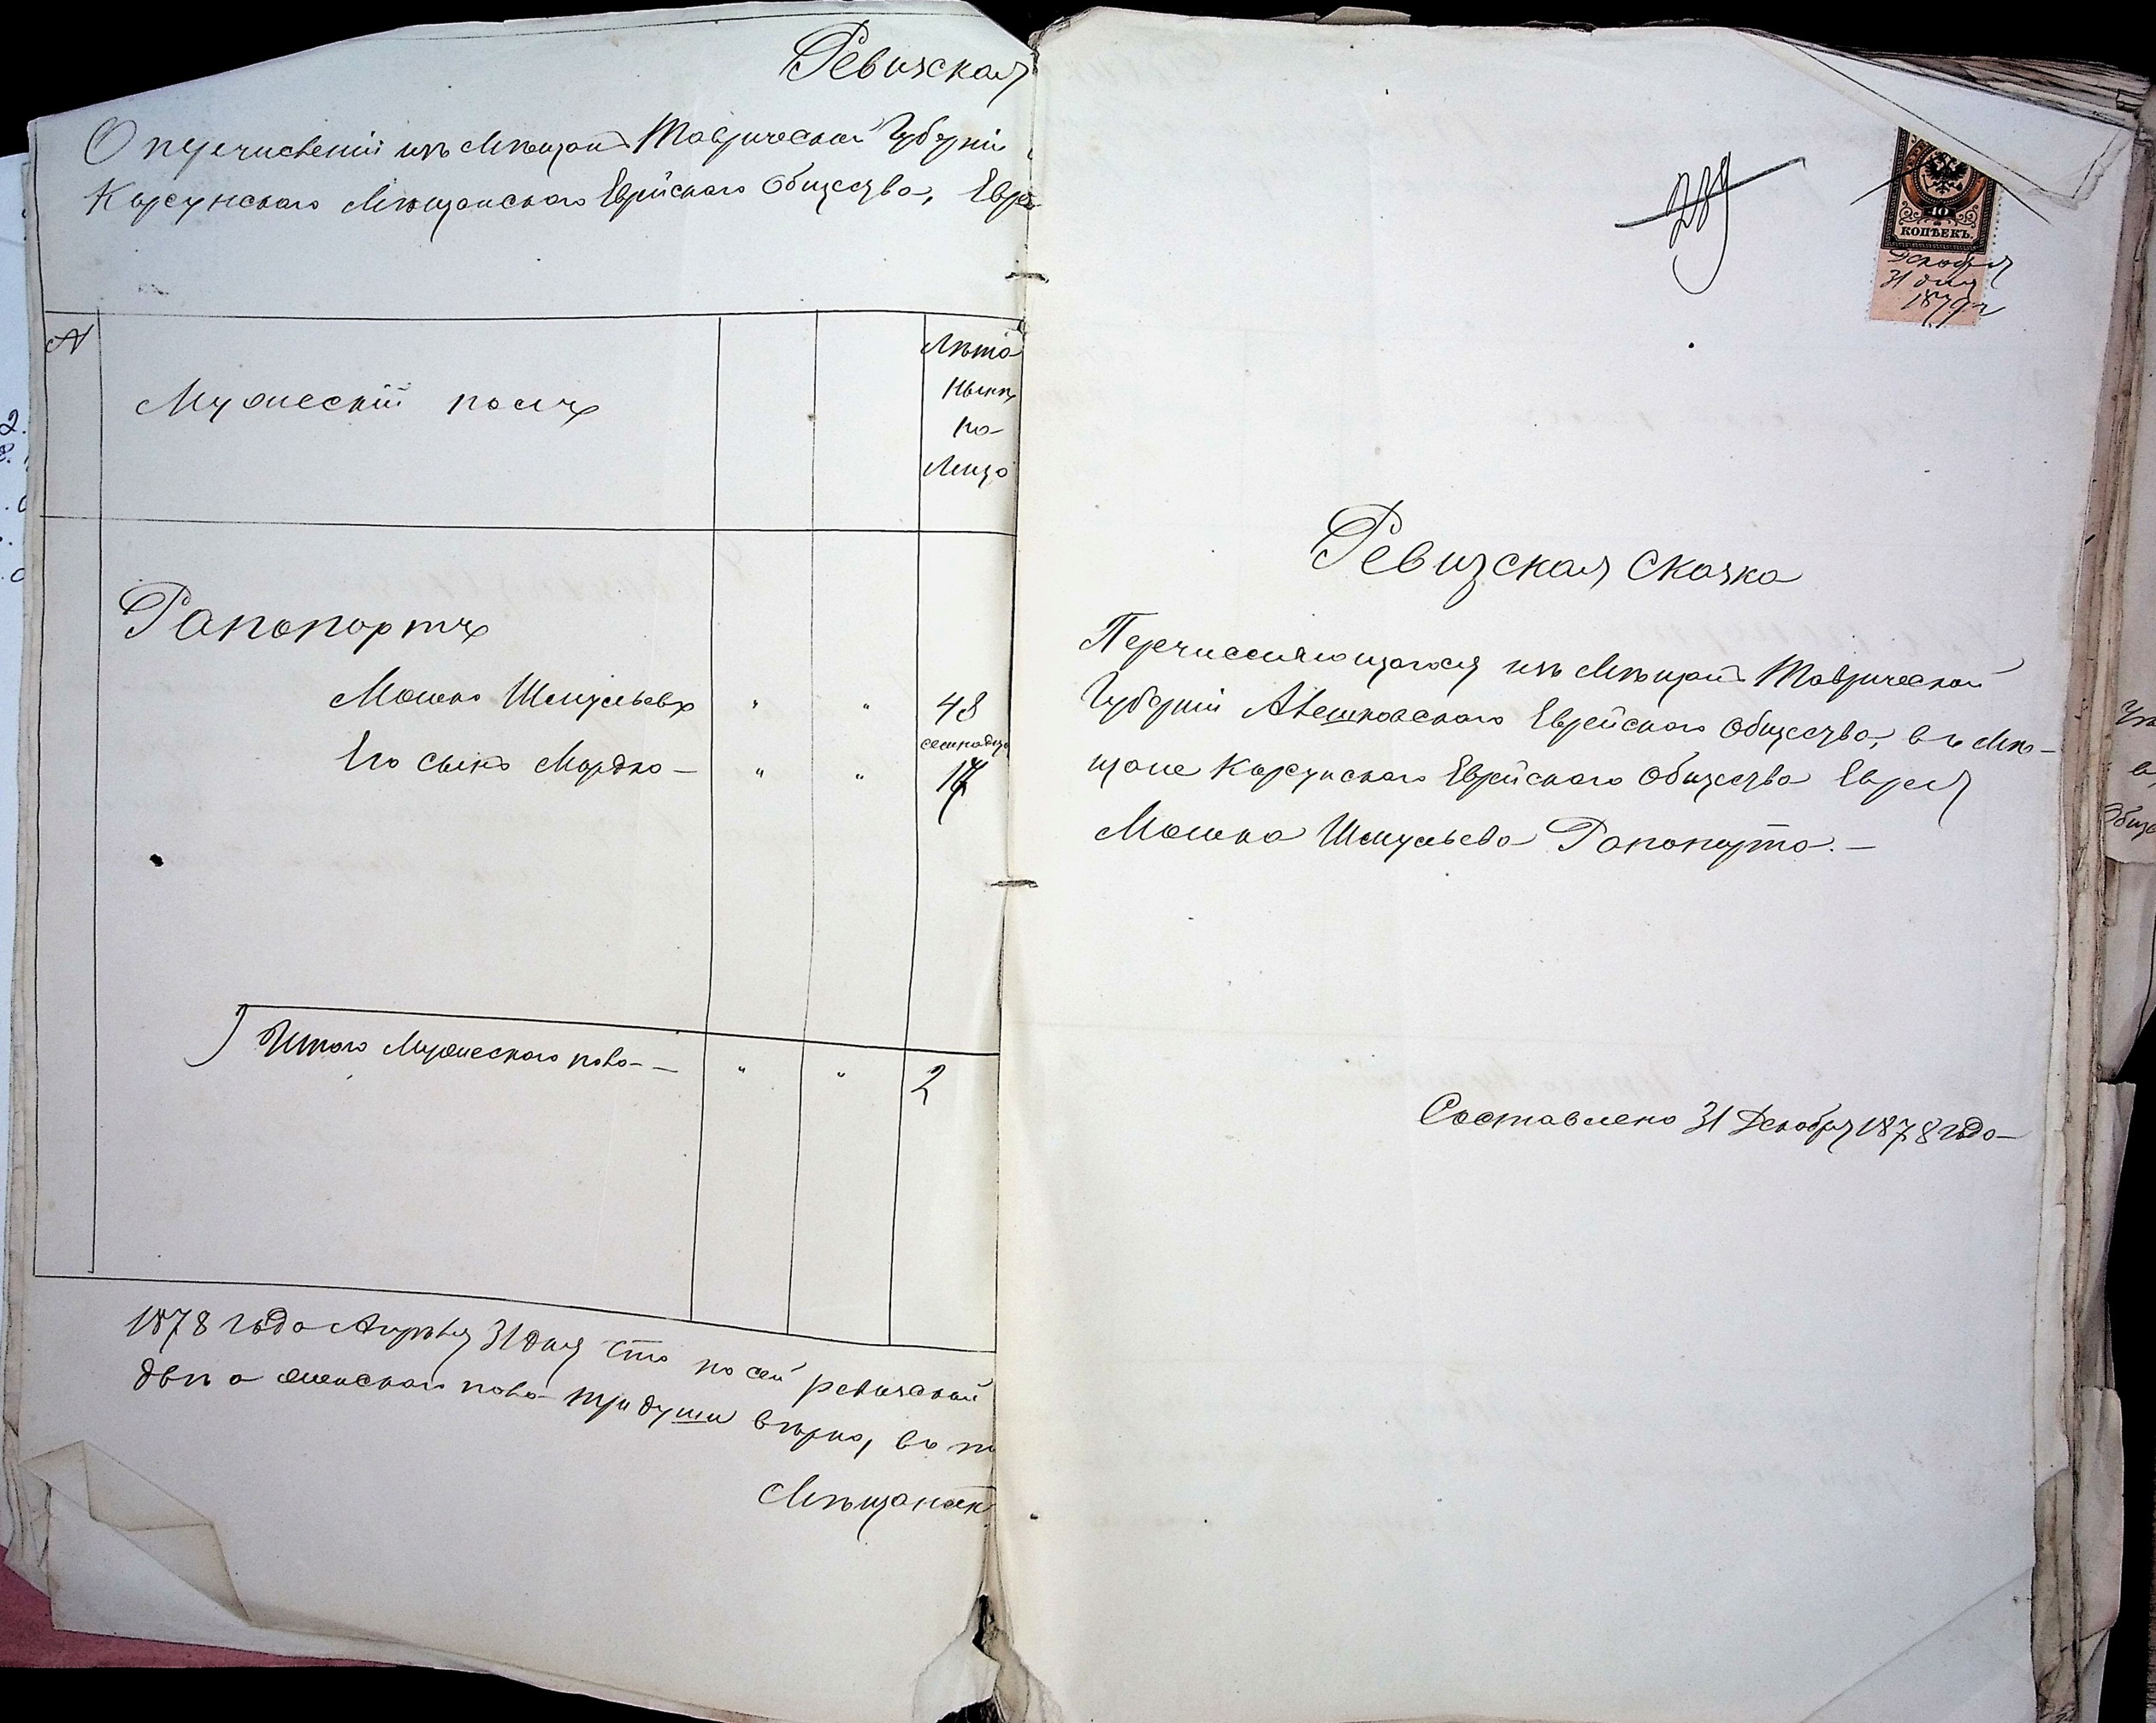 Ревизская
О перечисленіи изъ Мѣщанъ Таврической Губерніи
Корсунскаго Мѣщанскаго Еврейскаго Общества, Евре
№
Мужескій полъ
Лѣта
нынѣ
на
лицо
Рапопортъ
Мошко Шмульевъ " " 48
семнадца
Его сынъ Мордко — " " 17
Итого Мужескаго пола — " " 2
1878 года Апрѣля 31 дня Что по сей ревизской
двѣ а женскаго пола три души вѣрно, въ т
Мѣщанск
239
10
КОПѢЕКЪ.
Декабря
31 дня
1879 г
Ревизская сказка
Перечисляющагося изъ Мѣщанъ Таврической
Губерніи Алешковскаго Еврейскаго Общества, въ Мѣ-
щане Корсунскаго Еврейскаго Общества Еврея
Мошка Шмульева Рапопорта. —
Составлена 31 Декабря 1878 года